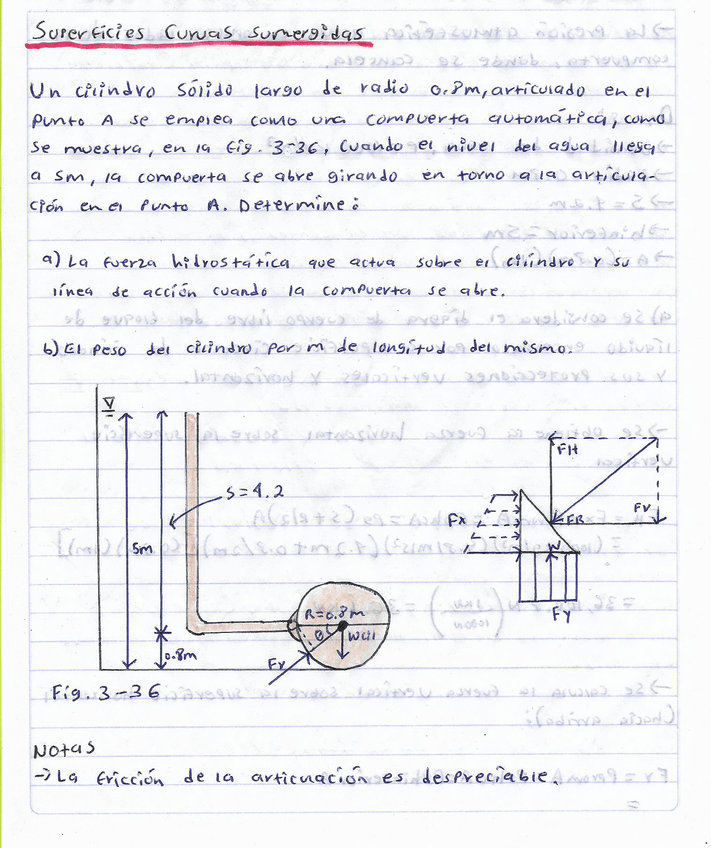 Superficies Curvas sumergidas
Un cilindro sólido largo de radio 0.8m, articulado en el
punto A se emplea como una compuerta automática, como
se muestra, en la fig. 3-36, Cuando el nivel del agua llega
a 5m, la compuerta se abre girando en torno a la articula-
ción en el Punto A. Determine:
a) La fuerza hidrostática que actua sobre el cilindro y su
línea de acción cuando la compuerta se abre.
b) El Peso del cilindro por m de longitud del mismo.
S=4.2
5m
0.8m
R=0.8m
θ
Wcil
Fr
FH
Fx
FR
FV
W
Fy
Fig. 3-36
Notas
→ La fricción de la articuación es despreciable.